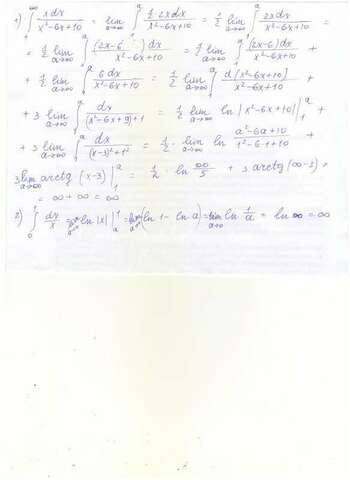 1) ∫₁^∞ xdx/(x²-6x+10) = lim_{a→∞} ∫₁^a (½·2xdx)/(x²-6x+10) = ½ lim_{a→∞} ∫₁^a 2xdx/(x²-6x+10) =
= ½ lim_{a→∞} ∫₁^a (2x-6)dx/(x²-6x+10) = ½ lim_{a→∞} ∫₁^a (2x-6)dx/(x²-6x+10) +
+ ½ lim_{a→∞} ∫₁^a 6dx/(x²-6x+10) = ½ lim_{a→∞} ∫₁^a d(x²-6x+10)/(x²-6x+10) +
+ 3 lim_{a→∞} ∫₁^a dx/((x²-6x+9)+1) = ½ lim_{a→∞} ln|x²-6x+10| |₁^a +
+ 3 lim_{a→∞} ∫₁^a dx/((x-3)²+1²) = ½· lim_{a→∞} ln (a²-6a+10)/(1²-6·1+10) +
3 lim_{a→∞} arctg(x-3)|₁^a = ½ · ln ∞/5 + 3 arctg(∞-3) =
= ∞ + ∞ = ∞
2) ∫₀¹ dx/x = lim_{a→0} ln|x| |ₐ¹ = lim_{a→0} (ln 1 - ln a) = lim_{a→0} ln 1/a = ln ∞ = ∞